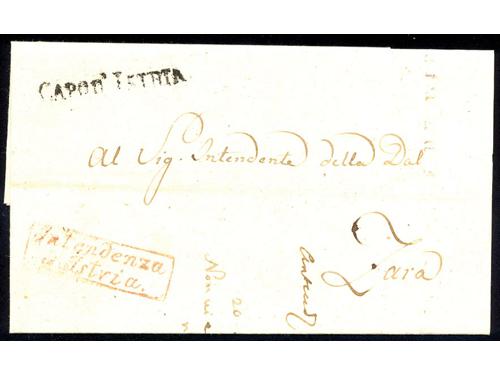 CAPOD'ISTRIA
Al Sig. Intendente della Dal
Zara
Intendenza
d'Istria.
20